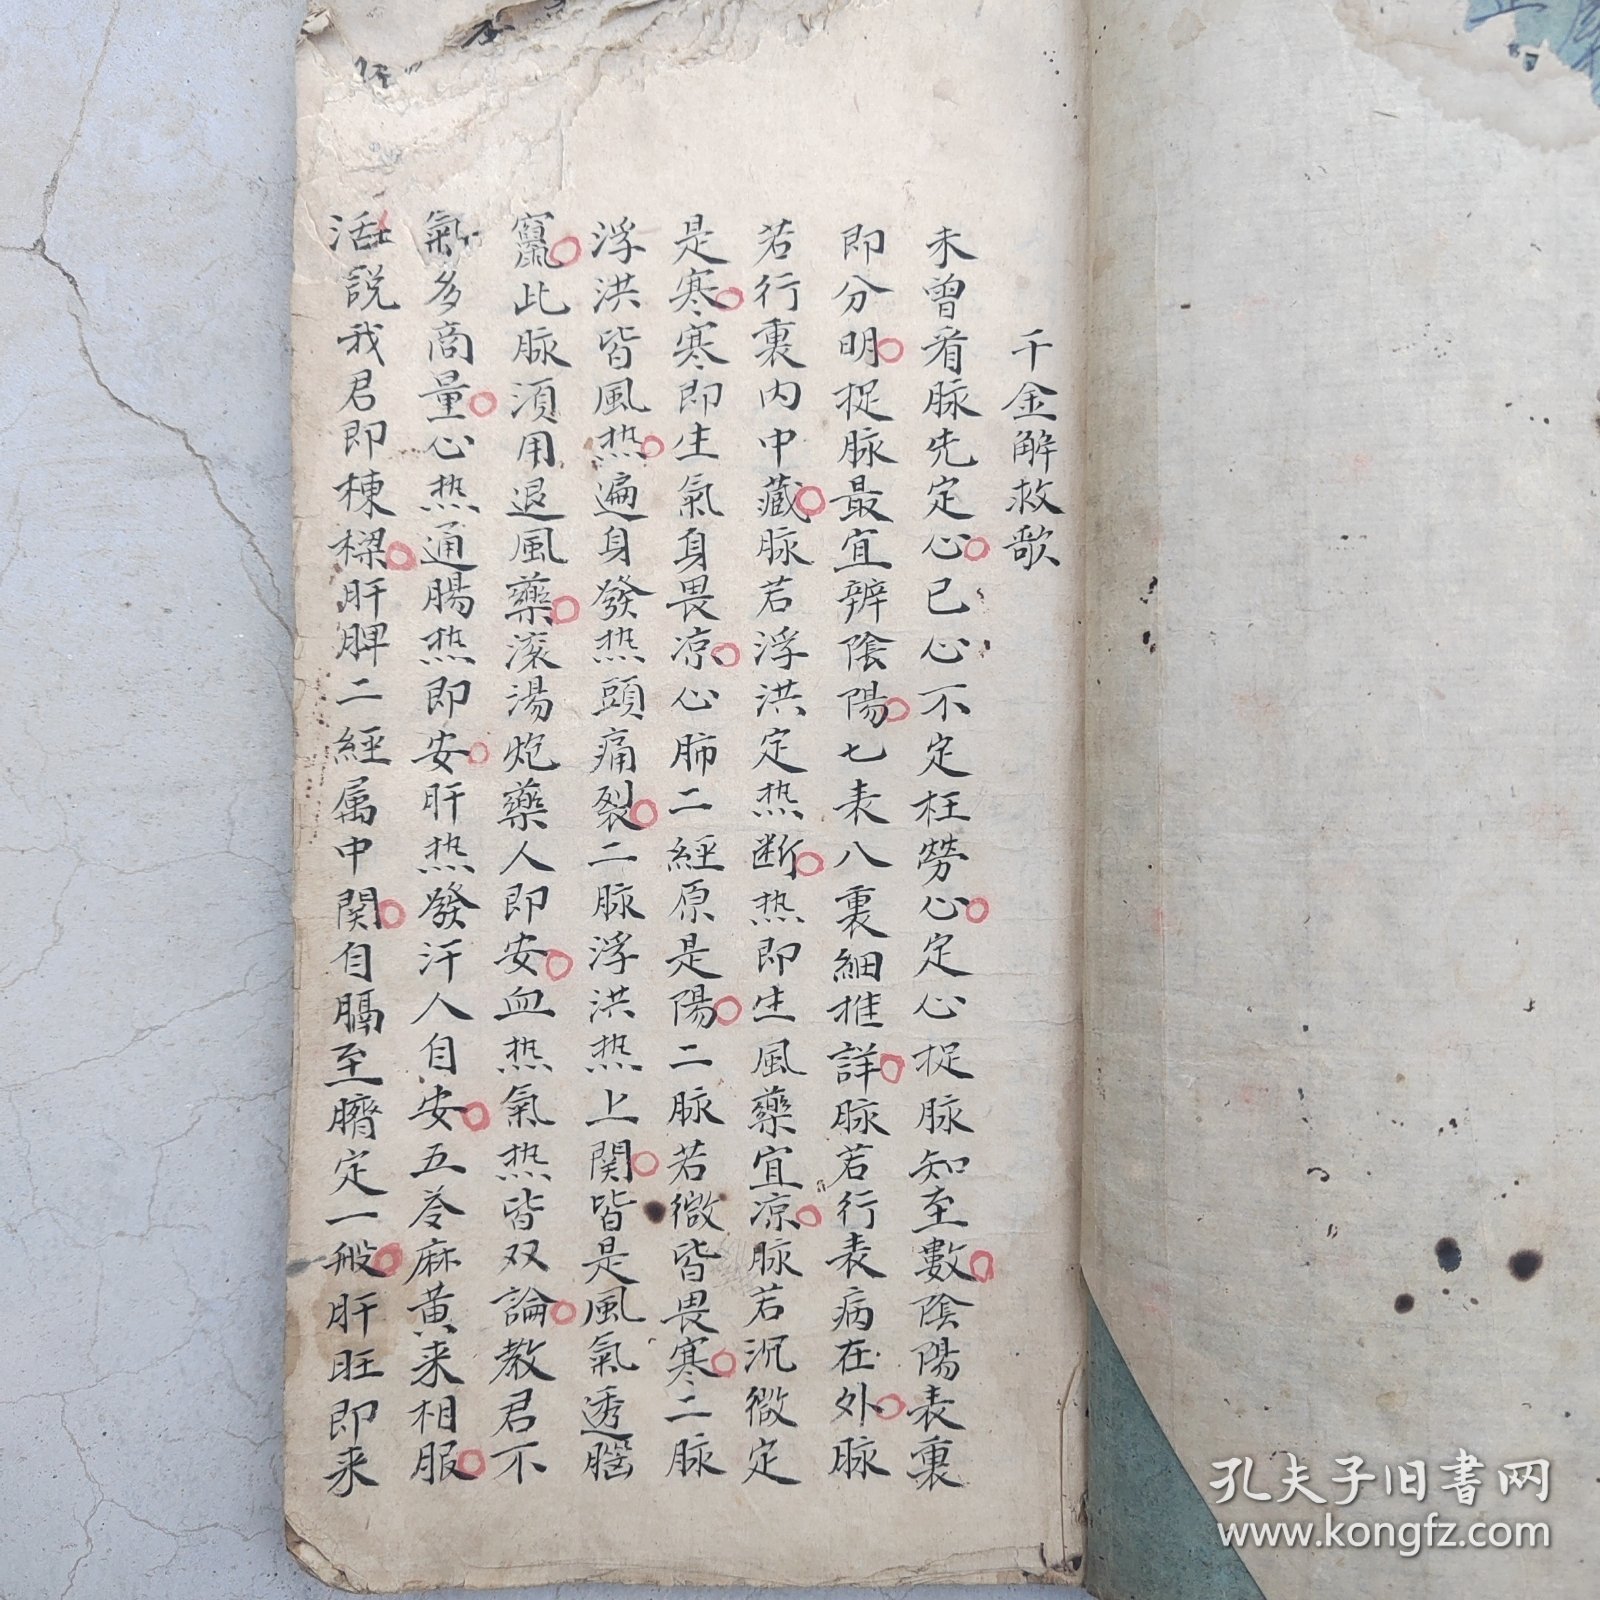 千金解救歌
未曾看脉先定心己心不定枉勞心定心捉脉知至數陰陽表裏
即分明捉脉最宜辨陰陽七表八裏細推詳脉若行表病在外脉
若行裏内中藏脉若浮洪定热断热即生風藥宜凉脉若沉微定
是寒寒即生氣身畏凉心肺二經原是陽二脉若微皆畏寒二脉
浮洪皆風热遍身發热頭痛裂二脉浮洪热上関皆是風氣透腦
此脉須用退風藥滚湯炮藥人即安血热氣热皆双論教君不
氣多商量心热通腸热即安肝热發汗人自安五苓麻黄来相服
活説我君即棟樑肝脾二經属中関自膈至臍定一般肝旺即来
孔夫子旧书网
www.kongfz.com